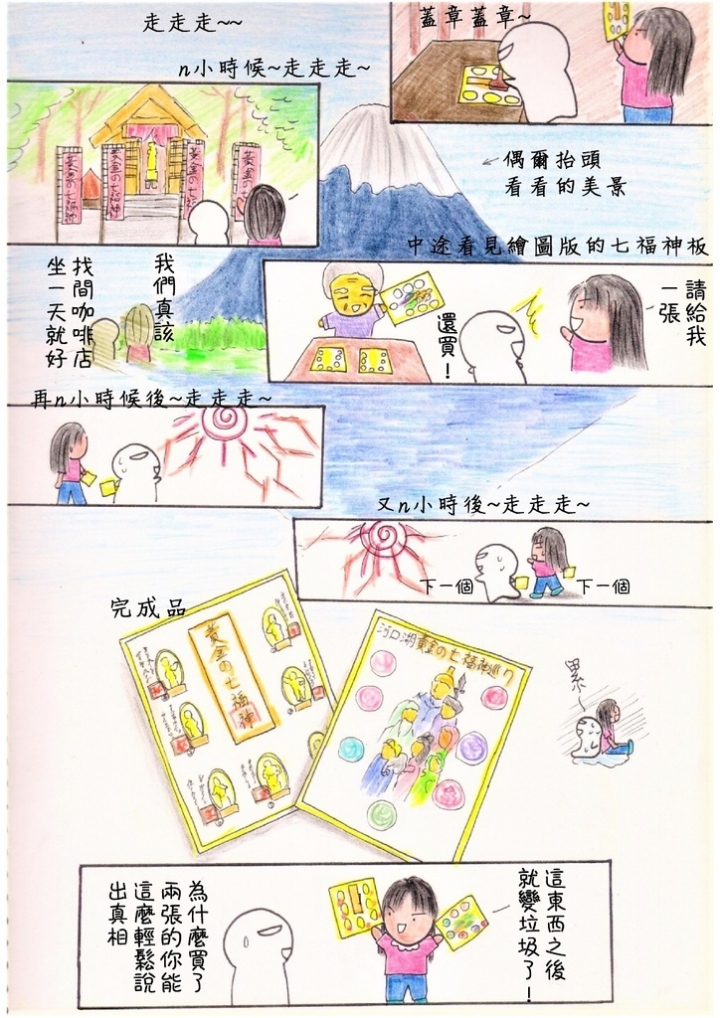 走走走~~
蓋章蓋章~
n小時候~走走走~
黃金の七福神
黃金の七福神
黃金の七福神
黃金の七福神
←偶爾抬頭
看看的美景
中途看見繪圖版的七福神板
請給我
一張
還買！
我們真該
找間咖啡店
坐一天就好
再n小時候後~走走走~
又n小時後~走走走~
下一個
下一個
完成品
黃金の七福神
河口湖黃金の七福神巡り
累~
這東西之後
就變垃圾了！
為什麼買了
兩張的你能
這麼輕鬆說
出真相